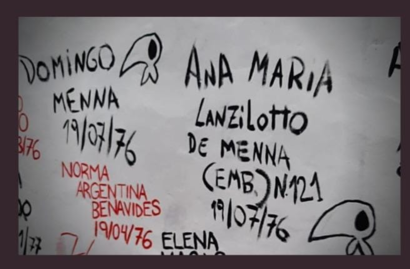 DOMINGO
MENNA
19/07/76
ANA MARIA
LANZILOTTO
DE MENNA
(EMB.) N:121
19/07/76
NORMA
ARGENTINA
BENAVIDES
19/04/76
ELENA